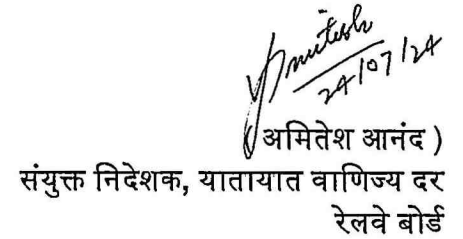 Amitesh
24/07/24
(अमितेश आनंद )
संयुक्त निदेशक, यातायात वाणिज्य दर
रेलवे बोर्ड